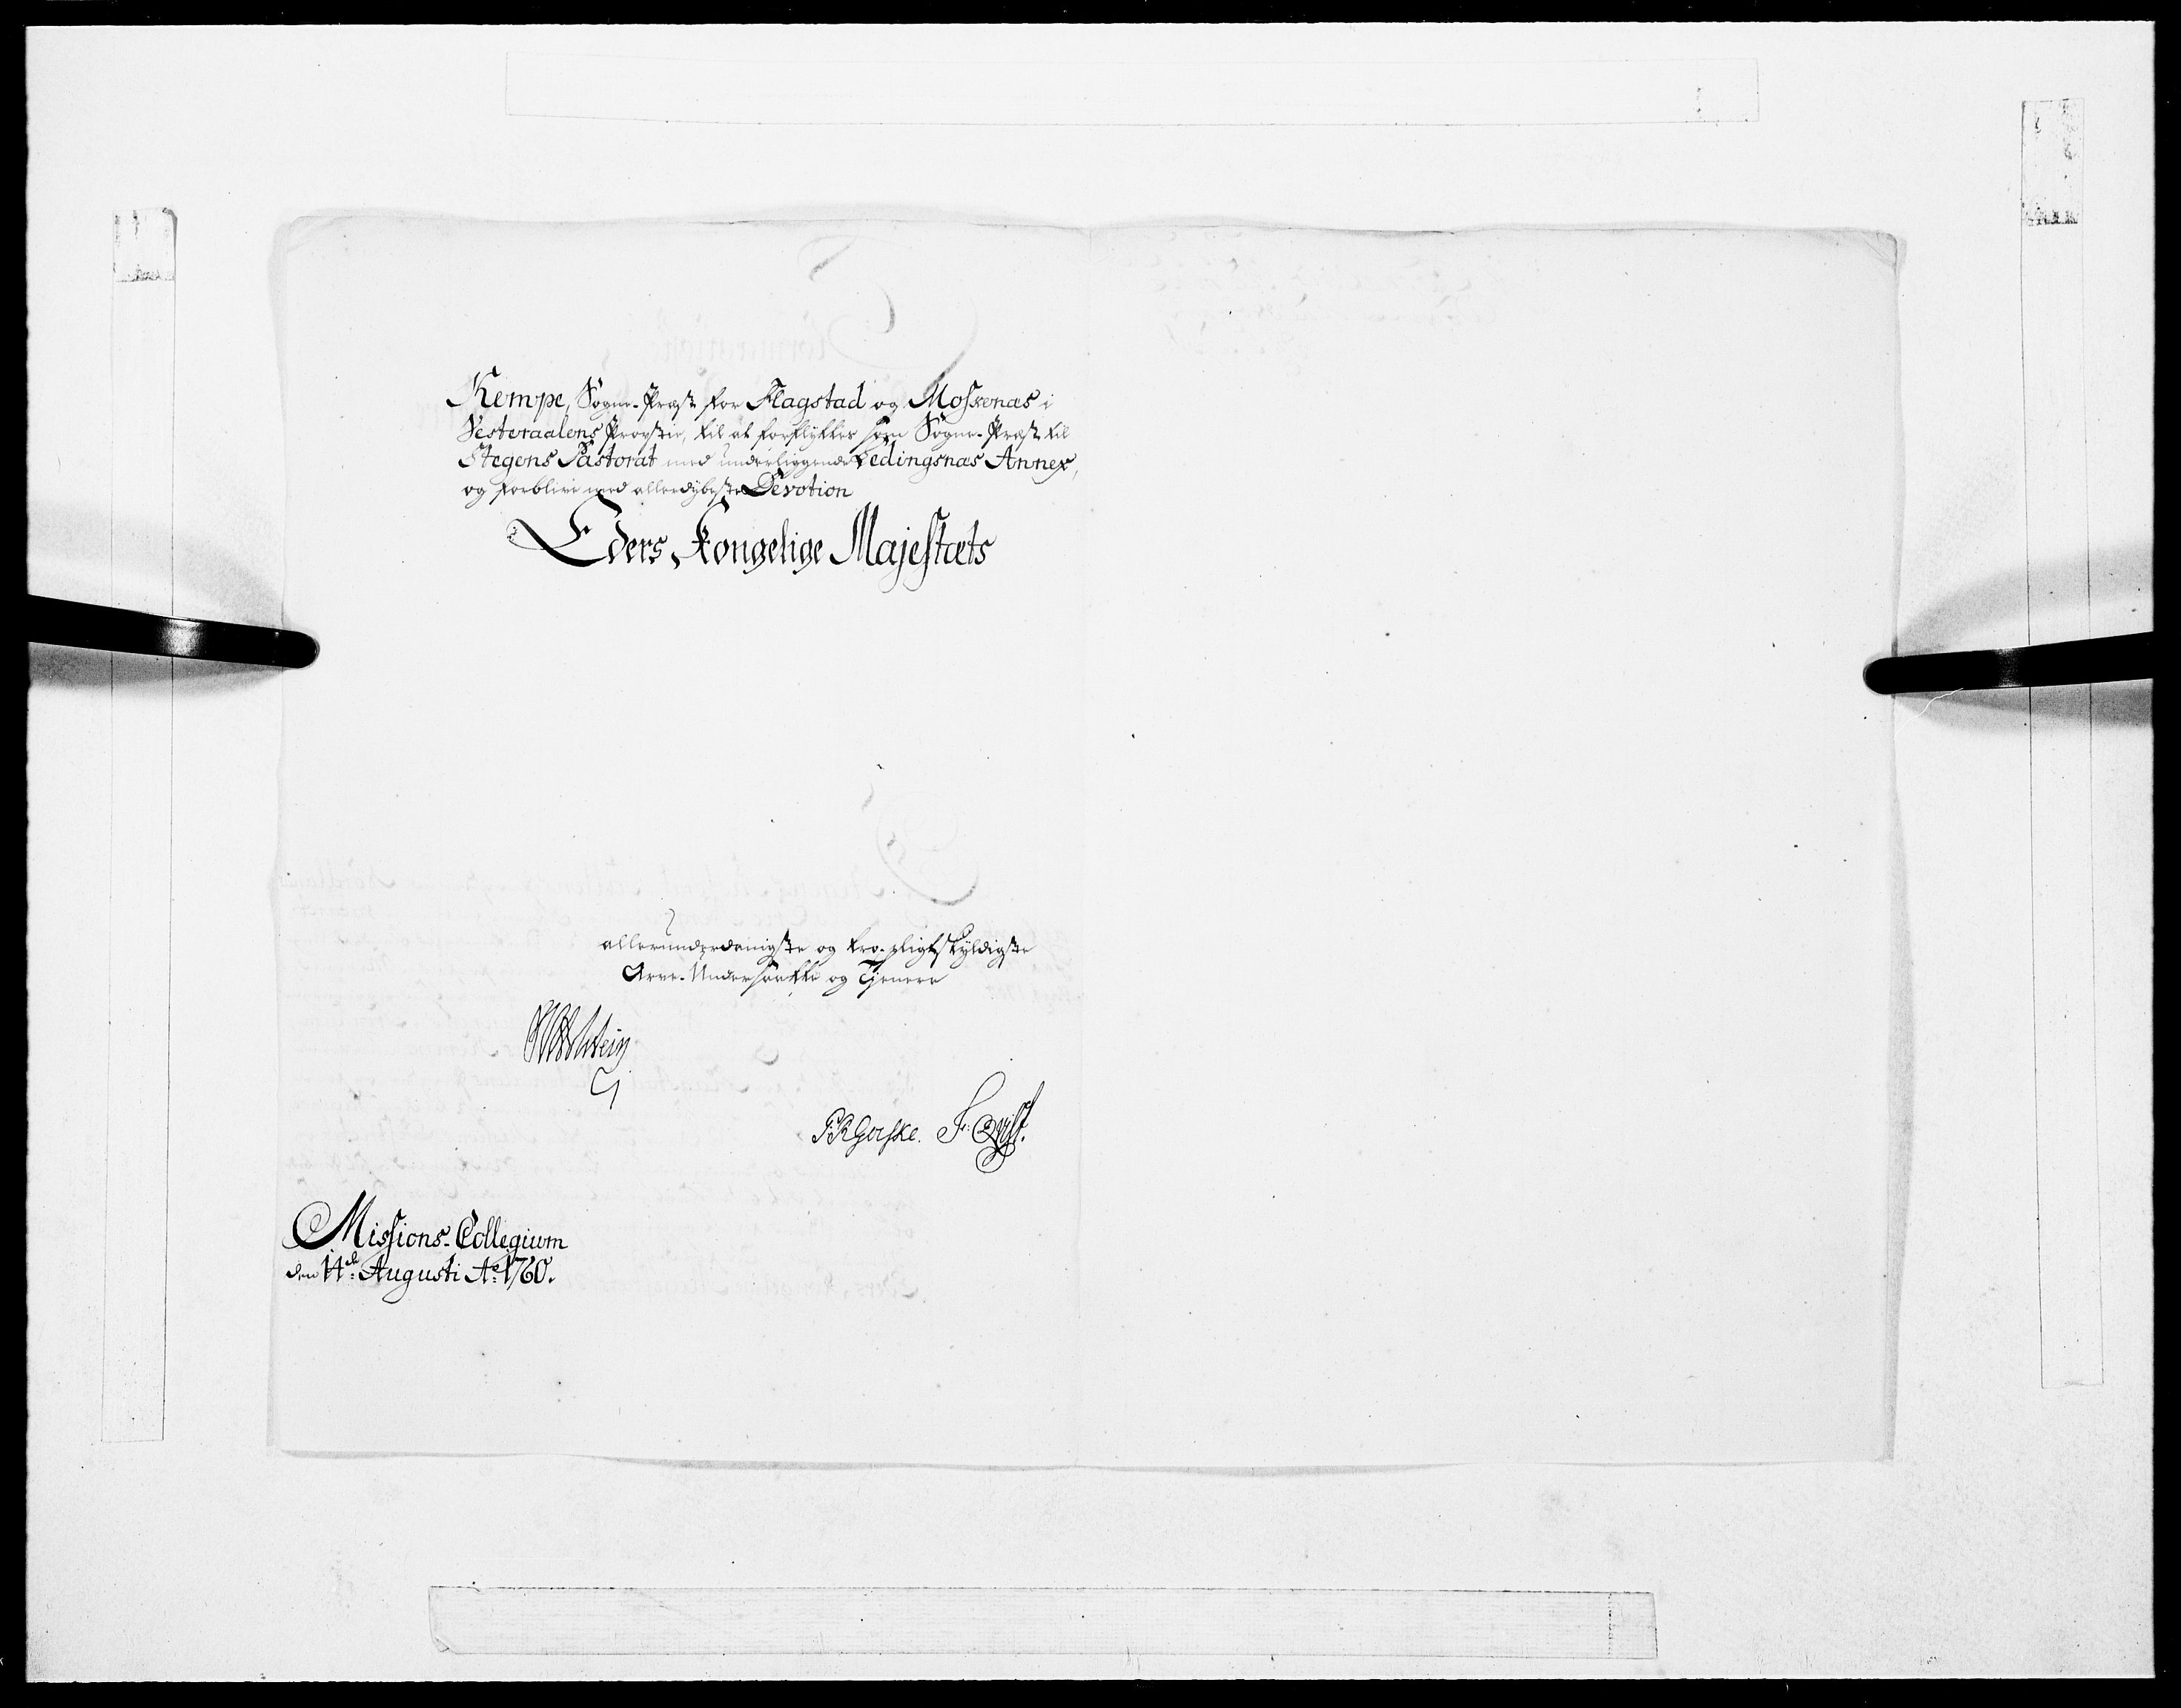 Kempe, Sogne-Præst for Flagstad og Moskenæs i
Vesteraalens Provstie, til at forflyttes som Sogne-Præst til
Stegens Pastorat med underliggende Ledingsnæs Annex,
og forblive med allerdybeste Devotion
Eders Kongelige Majestæts
allerunderdanigste og troe-pligtskyldigste
Arve-Undersaatte og Tjenere
Holstein
F: Qvist.
Missions-Collegium
den 14de Augusti Ao 1760.